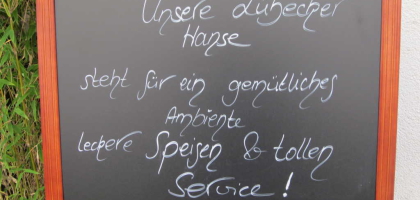 Unsere Lübecker
Hanse
steht für ein gemütliches
Ambiente
leckere Speisen & tollen
Service!